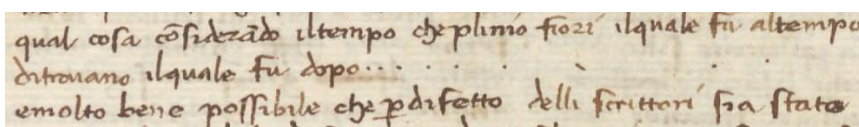 qual cosa cōsiderādo iltempo cheplinio fiorì ilquale fu altempo
ditraiano ilquale fu dopo . . . . . . .
emolto bene possibile che ꝑdifetto delli scrittori sia stato